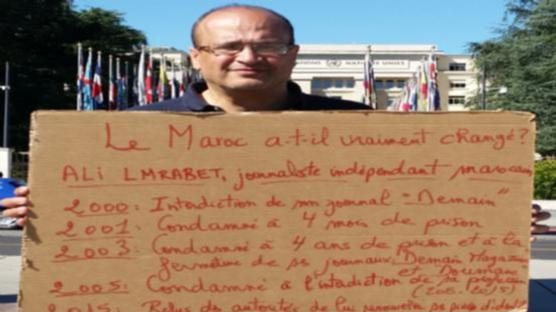 NATIONS UNIES
Le Maroc a-t-il vraiment changé?
ALI LMRABET, journaliste indépendant marocain
2000: Interdiction de mon journal "Demain"
2001: Condamné à 4 mois de prison
2003: Condamné à 4 ans de prison et à la
fermeture de ses journaux, Demain Magazine
et Douman
2005: Condamné à l'interdiction de sa profession
(2005-2015)
2015: Refus des autorités de lui renouveler ses pièces d'identité